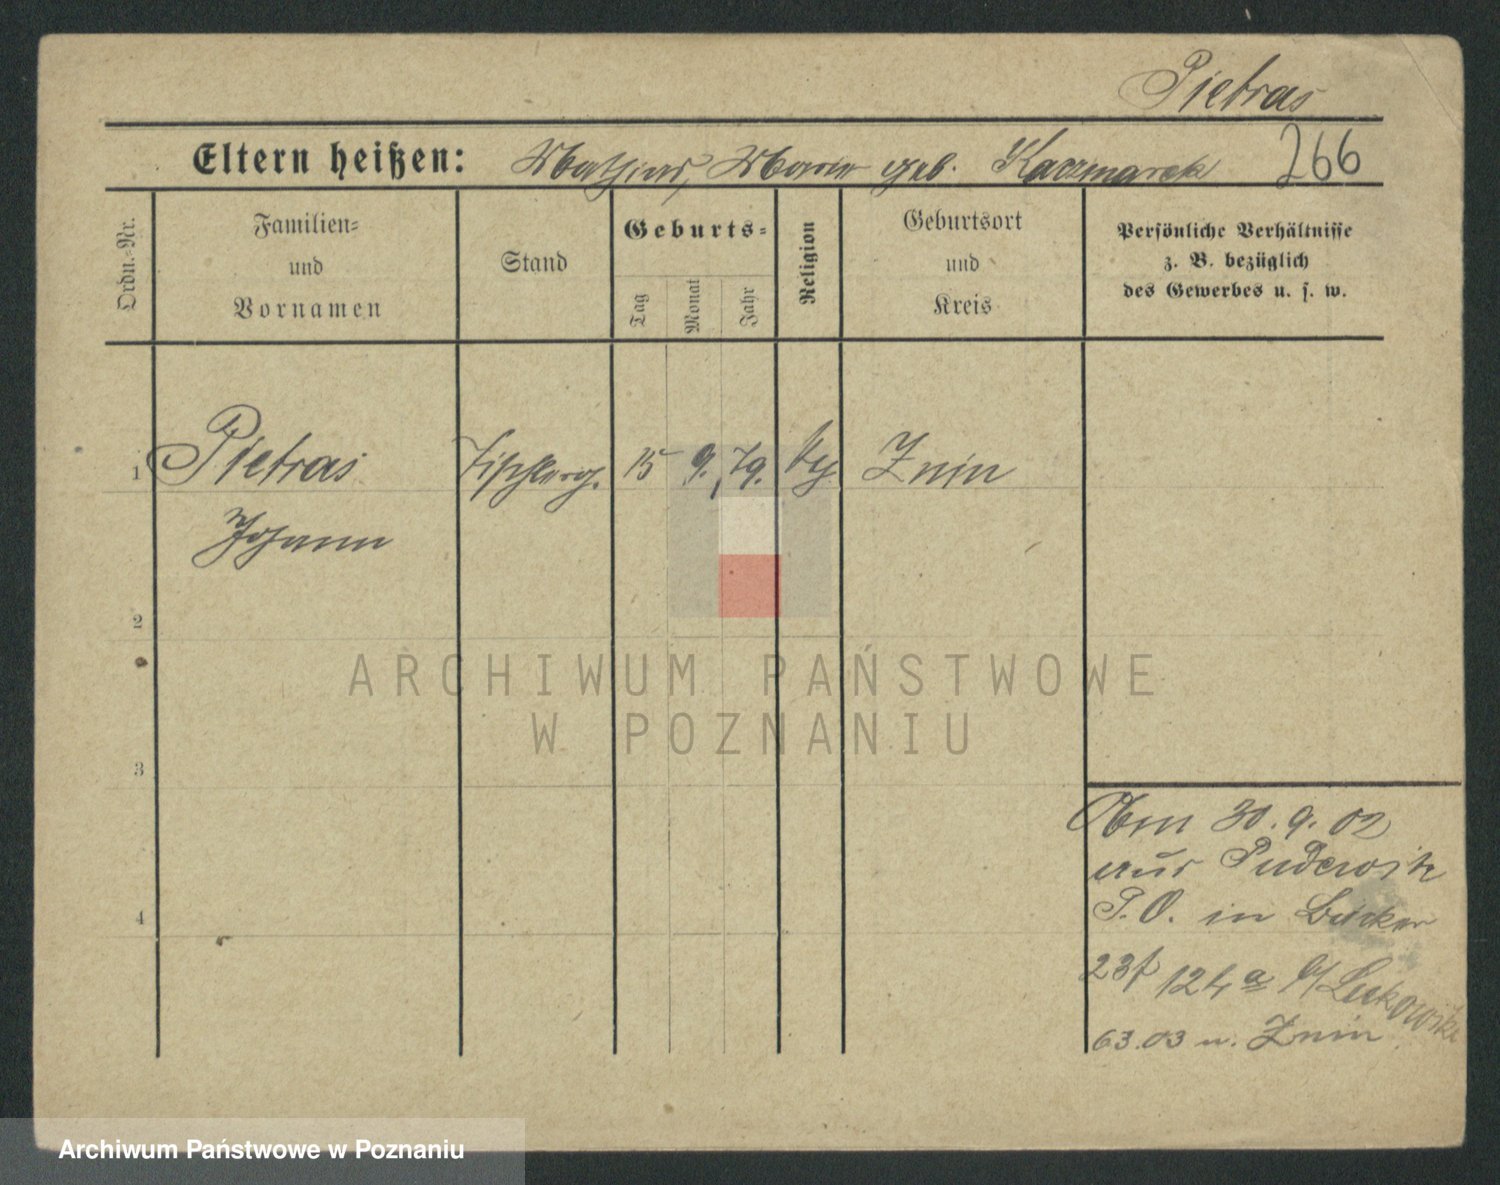 Pietras
Eltern heißen: Mathias, Marie geb. Kaczmarek 266
Ordn.-Nr.
Familien-
und
Vornamen
Stand
Geburts-
Tag
Monat
Jahr
Religion
Geburtsort
und
Kreis
Persönliche Verhältnisse
z. B. bezüglich
des Gewerbes u. s. w.
1 Pietras Tischlerg. 15 9. 79. Znin
Johann
2
3
4
30.9.02
aus Pudewitz
P.O. in
124a b/ Leskowski
63.03 n. Znin
ARCHIWUM PAŃSTWOWE
W POZNANIU
Archiwum Państwowe w Poznaniu